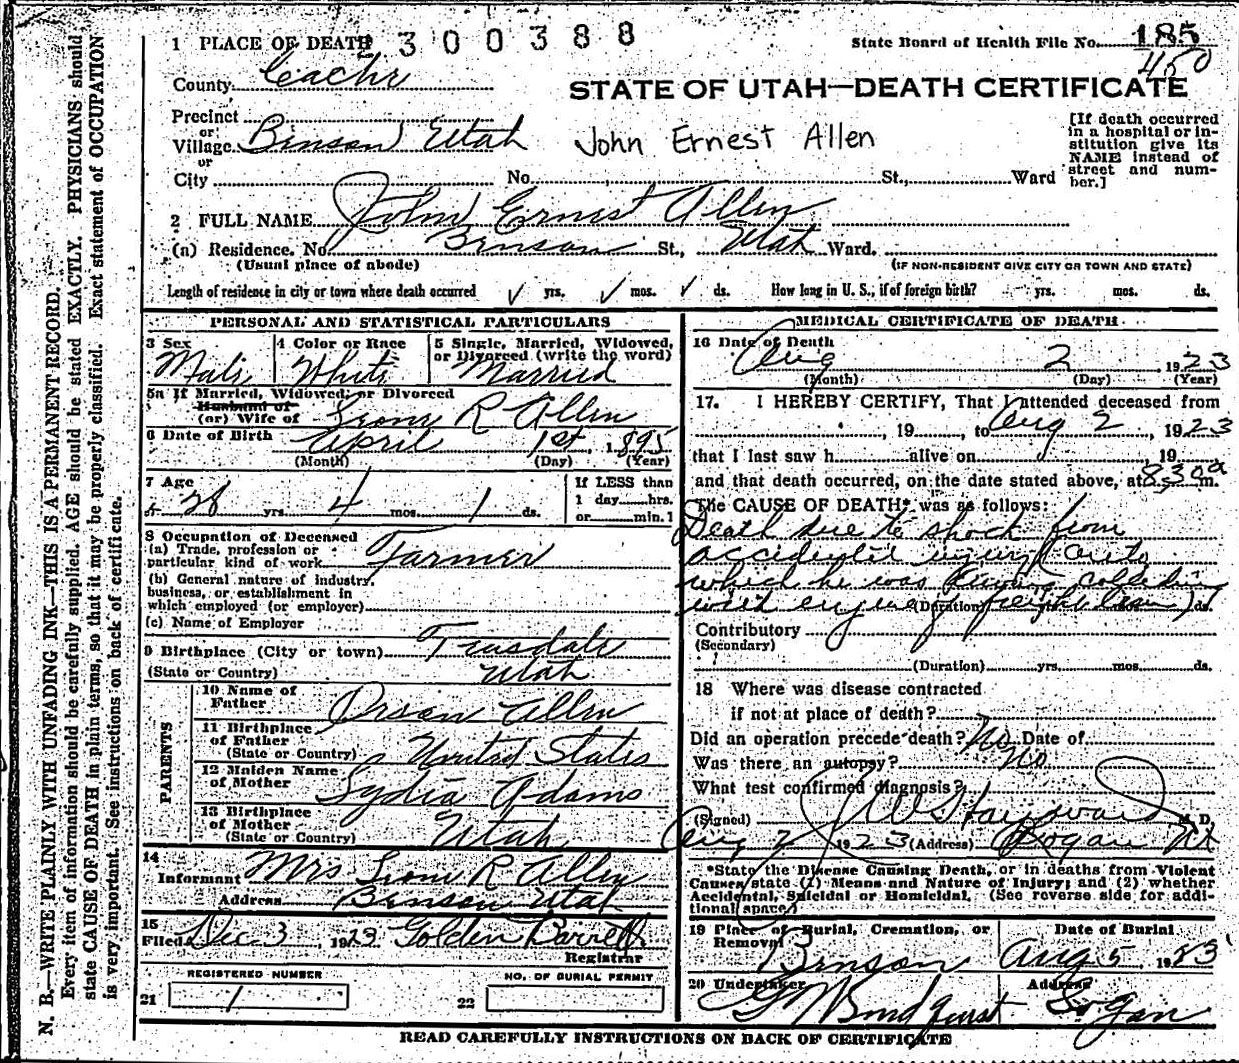 1 PLACE OF DEATH 2300388 State Board of Health File No. 185
450
County Cache
STATE OF UTAH—DEATH CERTIFICATE
Precinct
or
Village Benson Utah John Ernest Allen
or
City No. St., Ward
[If death occurred
in a hospital or in-
stitution give its
NAME instead of
street and num-
ber.]
2 FULL NAME John Ernest Allen
(a) Residence. No. Benson St., Utah Ward.
(Usual place of abode) (IF NON-RESIDENT GIVE CITY OR TOWN AND STATE)
Length of residence in city or town where death occurred ✓ yrs. ✓ mos. ✓ ds. How long in U. S., if of foreign birth? yrs. mos. ds.
PERSONAL AND STATISTICAL PARTICULARS
3 Sex 4 Color or Race 5 Single, Married, Widowed,
or Divorced (write the word)
Male White Married
5a If Married, Widowed, or Divorced
Husband of
(or) Wife of R Allen
6 Date of Birth April 1st, 1895
(Month) (Day) (Year)
7 Age If LESS than
28 yrs. 4 mos. 1 ds. 1 day hrs.
or min.
8 Occupation of Deceased
(a) Trade, profession or
particular kind of work Farmer
(b) General nature of industry,
business, or establishment in
which employed (or employer)
(c) Name of Employer
9 Birthplace (City or town) Teasdale
(State or Country) Utah
PARENTS
10 Name of
Father Orson Allen
11 Birthplace
of Father
(State or Country) United States
12 Maiden Name
of Mother Lydia Adams
13 Birthplace
of Mother
(State or Country) Utah
14
Informant Mrs R Allen
Address Benson Utah
15
Filed Dec 3 1923 Golden Barrett
Registrar
REGISTERED NUMBER NO. OF BURIAL PERMIT
21 1 22
MEDICAL CERTIFICATE OF DEATH
16 Date of Death
Aug 2 1923
(Month) (Day) (Year)
17. I HEREBY CERTIFY, That I attended deceased from
, 19 , to Aug 2, 1923
that I last saw h alive on 19
and that death occurred, on the date stated above, at 8:30 a m.
The CAUSE OF DEATH* was as follows:
Death due to shock from
accidental injury (auto
which he was driving colliding
with engine of freight train)
(Duration) ds.
Contributory
(Secondary)
(Duration) yrs. mos. ds.
18 Where was disease contracted
if not at place of death?
Did an operation precede death? No Date of
Was there an autopsy? No
What test confirmed diagnosis?
(Signed) Hayward M. D.
Aug 2 1923 (Address) Logan Ut
*State the Disease Causing Death, or in deaths from Violent
Causes state (1) Means and Nature of Injury; and (2) whether
Accidental, Suicidal or Homicidal. (See reverse side for addi-
tional space.)
19 Place of Burial, Cremation, or Date of Burial
Removal
Benson Aug 5, 1923
20 Undertaker Address
Logan
READ CAREFULLY INSTRUCTIONS ON BACK OF CERTIFICATE
N. B.—WRITE PLAINLY WITH UNFADING INK—THIS IS A PERMANENT RECORD.
Every item of information should be carefully supplied. AGE should be stated EXACTLY. PHYSICIANS should
state CAUSE OF DEATH in plain terms, so that it may be properly classified. Exact statement of OCCUPATION
is very important. See instructions on back of certificate.